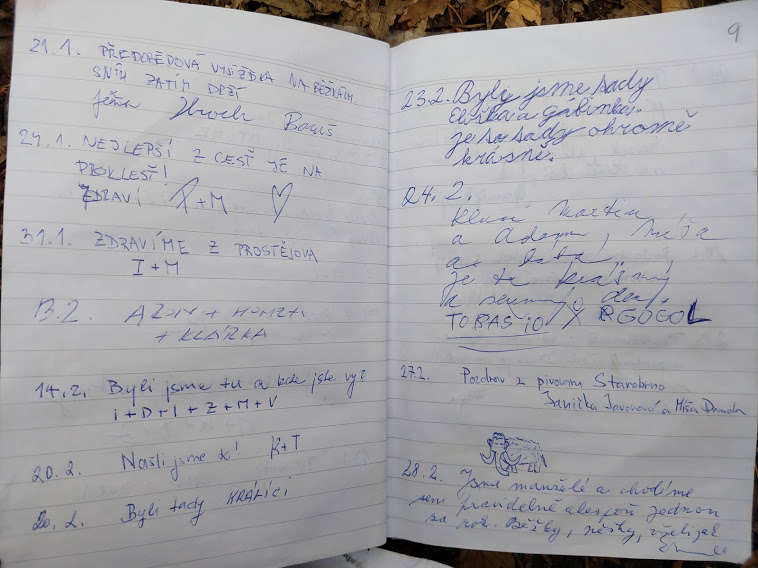 21.1. PŘEDOBĚDOVÁ VYJÍŽĎKA NA BĚŽKÁCH.
SNÍH ZATÍM DRŽÍ
Hroch
24.1. NEJLEPŠÍ Z CEST JE NA
PROKLEST!
ZDRAVÍ P+M
31.1. ZDRAVÍME Z PROSTĚJOVA
I+M
13.2. AZOM + HONZA
+ KLÁRKA
14.2. Byli jsme tu a kde jste vy?
i+D+I+Z+M+V
20.2. Našli jsme to! K+T
20.2. Byli tady KRÁLÍCI
9
23.2. Byly jsme sady
Eliška a gábinka.
je so sady ohromě
krásně.
24.2.
Kluci Martin
a Adam,
a táta,
je tu krásný
a den,
TOBASIO X RGOGOL
27.2. Pozdrav z pivovaru Starobrno
Janička Javorová a Míša Donda
28.2. Jsme manželé a chodíme
sem pravidelně alespoň jednou
za rok. Běžky, pěšky, všelijak